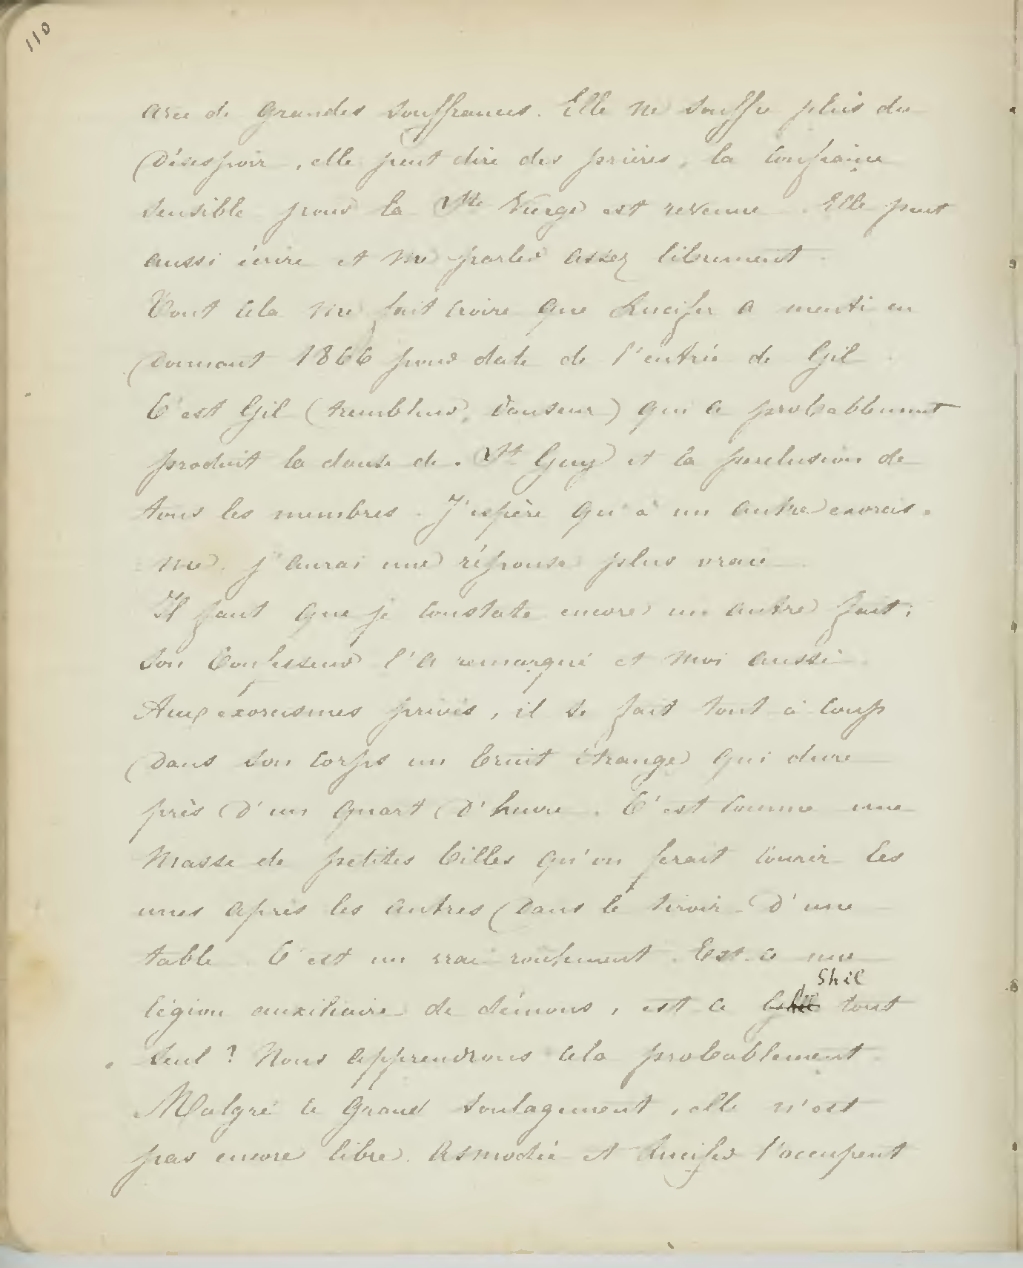 110
avec de grandes souffrances. Elle ne souffre plus du
désespoir, elle peut dire des prières, la confiance
sensible pour la Ste Vierge est revenue. Elle peut
aussi écrire et me parler assez librement.
Tout cela me fait croire que Lucifer a menti en
donnant 1866 pour date de l'entrée de Gil
C'est Gil (trembleur, danseur) qui a probablement
produit la danse de St Guy et la perclusion de
tous les membres. J'espère qu'à un autre exorcis-
me j'aurai une réponse plus vraie
Il faut que je constate encore un autre fait;
son Confesseur l'a remarqué et moi aussi
Aux exorcismes privés, il se fait tout à coup
dans son corps un bruit étrange qui dure
près d'un quart d'heure. C'est comme une
masse de petites billes qu'on ferait courir les
unes après les autres dans le tiroir d'une
table C'est un vrai roulement. Est-ce une
Shil
légion auxiliaire de démons, est ce tout
seul? Nous apprendrons cela probablement
Malgré ce grand soulagement, elle n'est
pas encore libre. Asmodée et Lucifer l'occupent